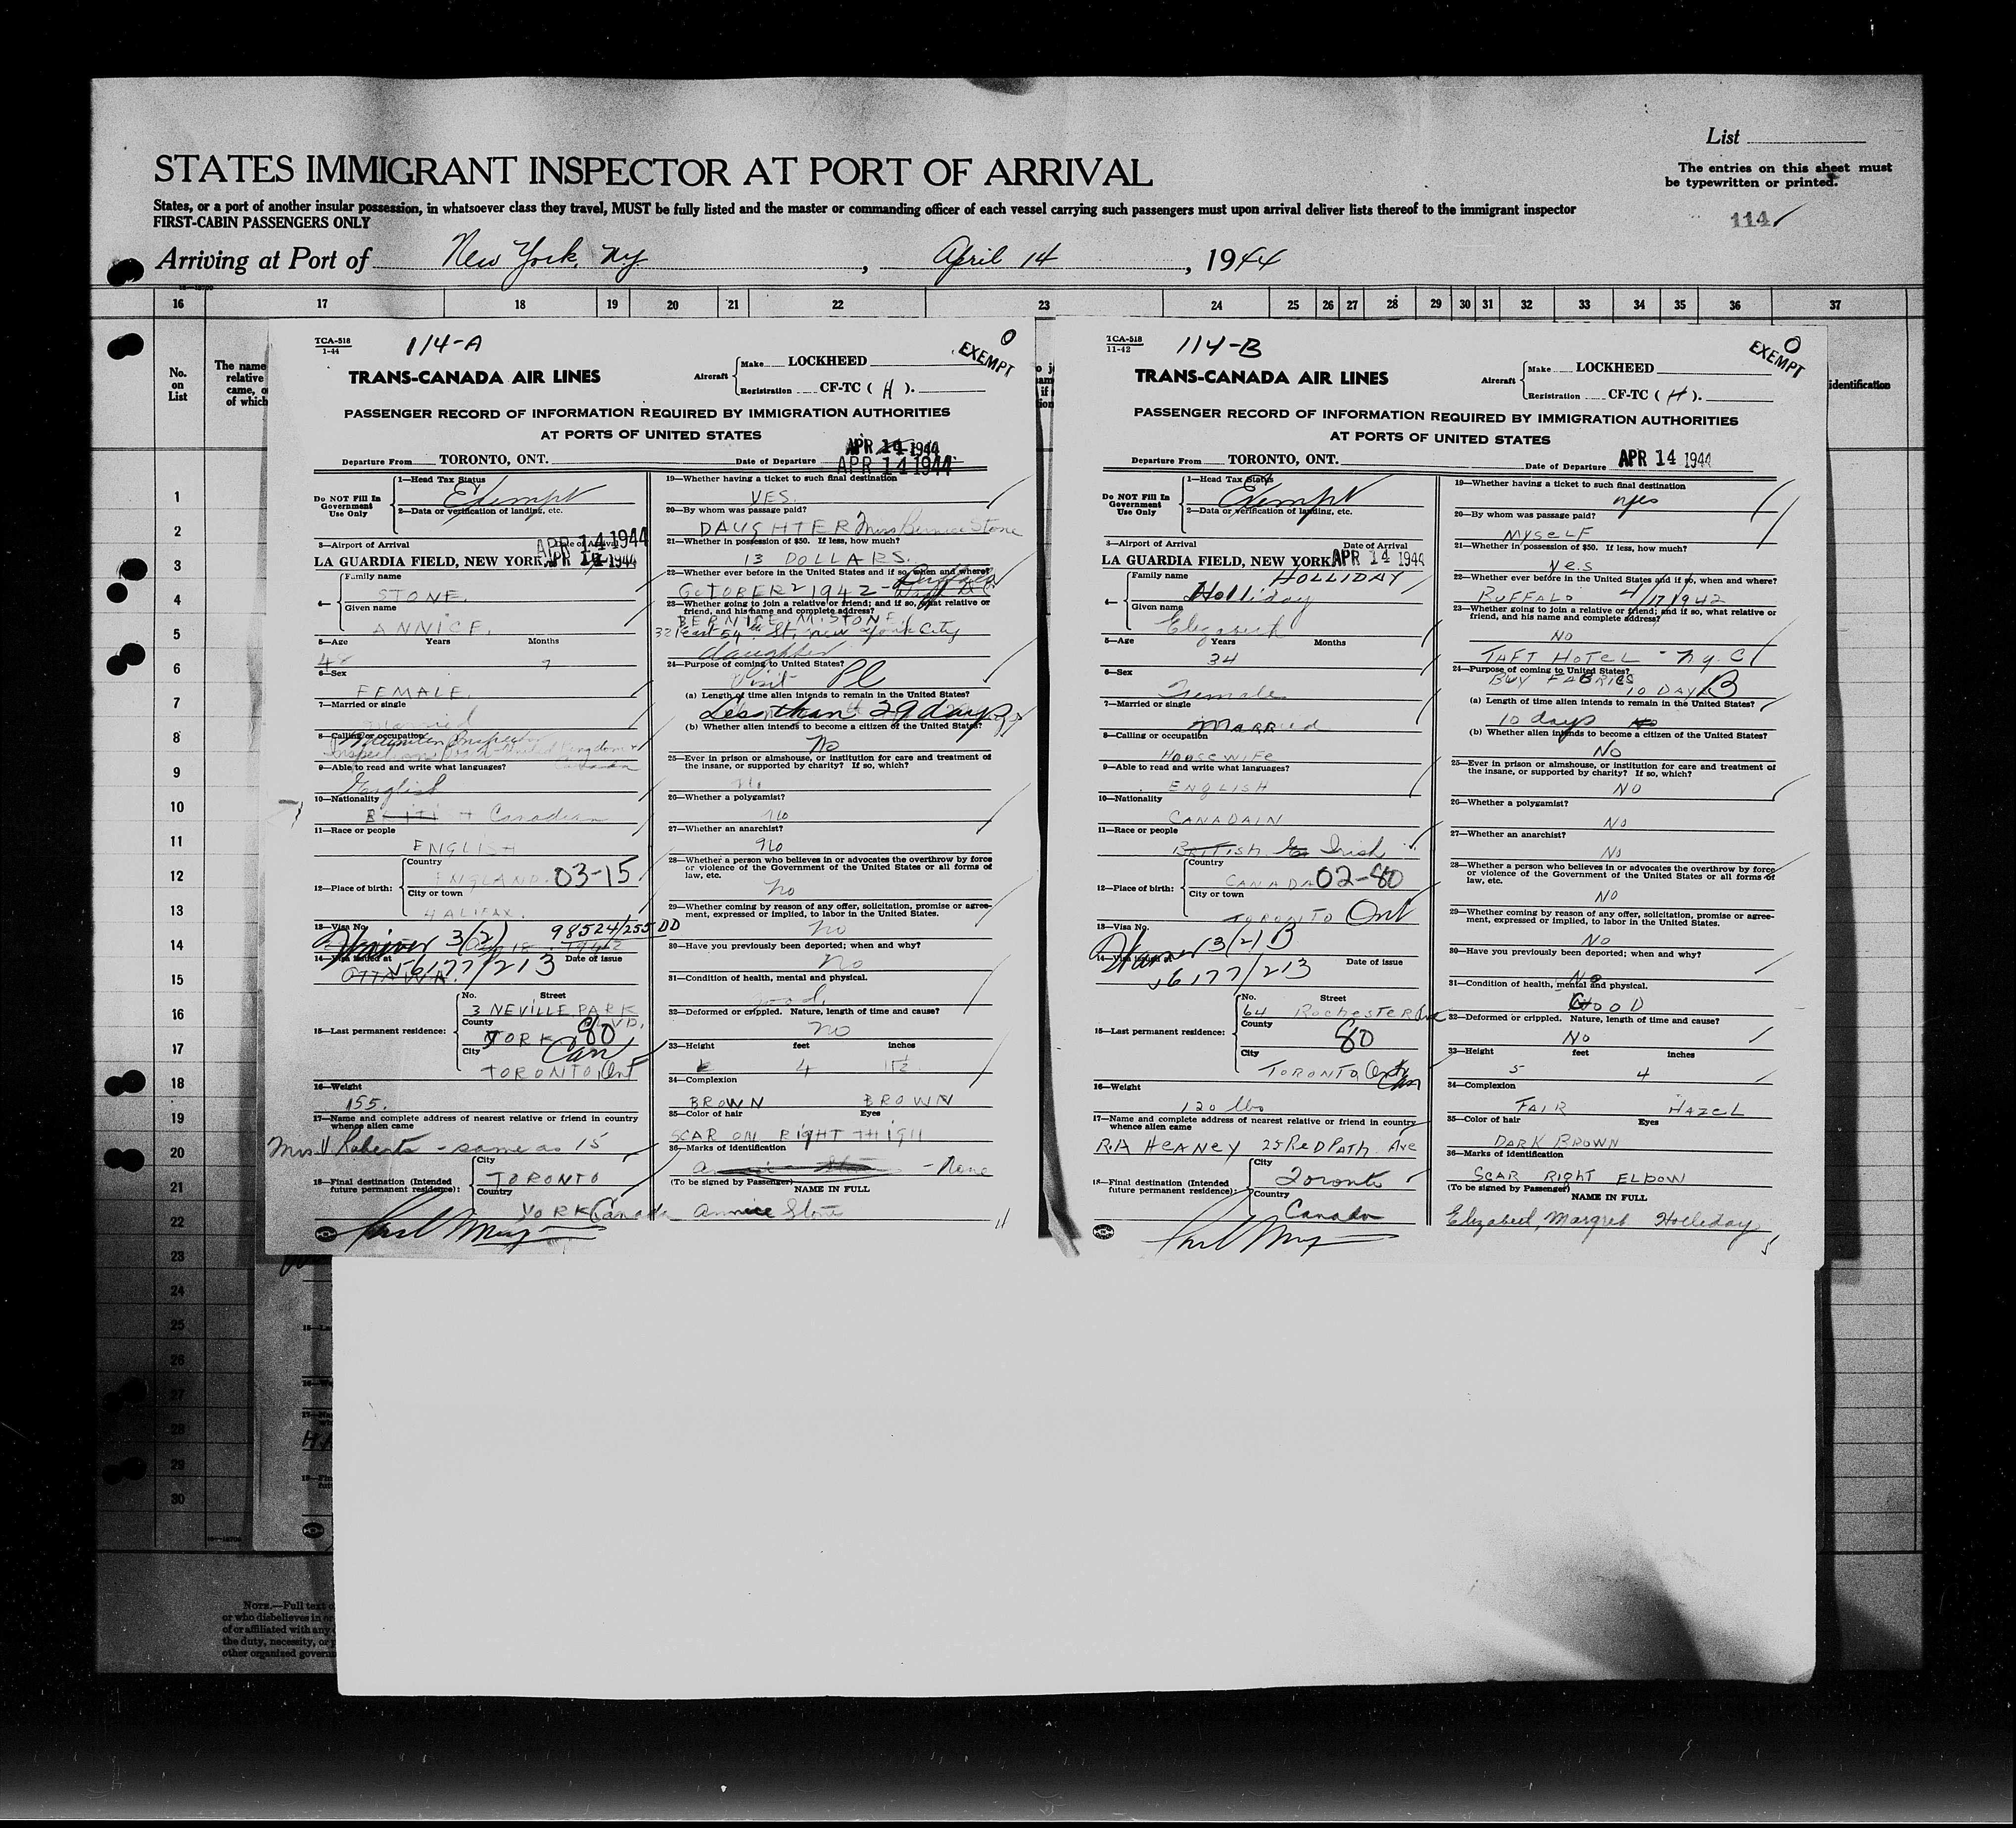 List
STATES IMMIGRANT INSPECTOR AT PORT OF ARRIVAL
The entries on this sheet must
be typewritten or printed.
States, or a port of another insular possession, in whatsoever class they travel, MUST be fully listed and the master or commanding officer of each vessel carrying such passengers must upon arrival deliver lists thereof to the immigrant inspector
FIRST-CABIN PASSENGERS ONLY
114
Arriving at Port of New York, Ny, April 14, 1944
16 17 18 19 20 21 22 23 24 25 26 27 28 29 30 31 32 33 34 35 36 37
No.
on
List
The name
relative
came, o
of which
identification
1
2
3
4
5
6
7
8
9
10
11
12
13
14
15
16
17
18
19
20
21
22
23
24
25
26
27
28
29
30
TCA-518
1-44
114-A
O
EXEMPT
TRANS-CANADA AIR LINES
Aircraft
Make LOCKHEED
Registration CF-TC ( H ).
PASSENGER RECORD OF INFORMATION REQUIRED BY IMMIGRATION AUTHORITIES
AT PORTS OF UNITED STATES
APR 14 1944
Departure From TORONTO, ONT. Date of Departure APR 14 1944
Do NOT Fill In
Government
Use Only
1—Head Tax Status
Exempt
2—Data or verification of landing, etc.
3—Airport of Arrival Date of Arrival APR 14 1944
LA GUARDIA FIELD, NEW YORK APR 14 1944
4—
Family name
STONE.
Given name
ANNICE.
5—Age Years Months
7
6—Sex
FEMALE.
7—Married or single
Married
8—Calling or occupation
Munition Inspector
9—Able to read and write what languages?
English
10—Nationality
Canadian
11—Race or people
ENGLISH
12—Place of birth:
Country
ENGLAND. 03-15
City or town
HALIFAX.
13—Visa No. 98524/255 DD
3/2)
14—Visa issued at Date of issue
OTTAWA. 56177/213
15—Last permanent residence:
No. Street
3 NEVILLE PARK
BLVD.
County
YORK 80
City Can
TORONTO, Ont
16—Weight
155.
17—Name and complete address of nearest relative or friend in country
whence alien came
Mrs. V Roberts - same as 15
18—Final destination (Intended
future permanent residence):
City
TORONTO
Country
YORK Canada
19—Whether having a ticket to such final destination
YES.
20—By whom was passage paid?
DAUGHTER Miss Bernice Stone
21—Whether in possession of $50. If less, how much?
13 DOLLARS.
22—Whether ever before in the United States and if so, when and where?
OCTOBER 2 1942 - Buffalo
23—Whether going to join a relative or friend; and if so, what relative or
friend, and his name and complete address?
BERNICE M. STONE
32 East 54th St. New York City
daughter
24—Purpose of coming to United States?
Visit Pl
(a) Length of time alien intends to remain in the United States?
Less than 29 days
(b) Whether alien intends to become a citizen of the United States?
No
25—Ever in prison or almshouse, or institution for care and treatment of
the insane, or supported by charity? If so, which?
No
26—Whether a polygamist?
No
27—Whether an anarchist?
No
28—Whether a person who believes in or advocates the overthrow by force
or violence of the Government of the United States or all forms of
law, etc.
no
29—Whether coming by reason of any offer, solicitation, promise or agree-
ment, expressed or implied, to labor in the United States.
no
30—Have you previously been deported; when and why?
no
31—Condition of health, mental and physical.
good.
32—Deformed or crippled. Nature, length of time and cause?
no
33—Height feet inches
4
34—Complexion
BROWN BROWN
35—Color of hair Eyes
SCAR ON RIGHT THIGH
36—Marks of identification
- None
(To be signed by Passenger) NAME IN FULL
Annice Stone
TCA-518
11-42
114-B
O
EXEMPT
TRANS-CANADA AIR LINES
Aircraft
Make LOCKHEED
Registration CF-TC ( H ).
PASSENGER RECORD OF INFORMATION REQUIRED BY IMMIGRATION AUTHORITIES
AT PORTS OF UNITED STATES
Departure From TORONTO, ONT. Date of Departure APR 14 1944
Do NOT Fill In
Government
Use Only
1—Head Tax Status
Exempt
2—Data or verification of landing, etc.
3—Airport of Arrival Date of Arrival
LA GUARDIA FIELD, NEW YORK APR 14 1944
4—
Family name HOLLIDAY
Holliday
Given name
Elizabeth
5—Age Years Months
34
6—Sex
Female
7—Married or single
MARRIED
8—Calling or occupation
HOUSEWIFE
9—Able to read and write what languages?
ENGLISH
10—Nationality
CANADAIN
11—Race or people
BRITISH Irish
12—Place of birth:
Country
CANADA 02-80
City or town
TORONTO Ont
13—Visa No.
3/2) B
Date of issue
56177/213
15—Last permanent residence:
No. Street
64 ROCHESTER Ave
County
80
City
TORONTO Ont
Can
16—Weight
120 lbs
17—Name and complete address of nearest relative or friend in country
whence alien came
R.A HEANEY 25 REDPATH Ave
18—Final destination (Intended
future permanent residence):
City
Toronto
Country
Canada
19—Whether having a ticket to such final destination
yes
20—By whom was passage paid?
MYSELF
21—Whether in possession of $50. If less, how much?
Yes
22—Whether ever before in the United States and if so, when and where?
BUFFALO 4/17/1942
23—Whether going to join a relative or friend; and if so, what relative or
friend, and his name and complete address?
NO
TAFT HOTEL - N.Y.C
24—Purpose of coming to United States?
BUY FABRICS 10 DAYS B
(a) Length of time alien intends to remain in the United States?
10 days
(b) Whether alien intends to become a citizen of the United States?
No
25—Ever in prison or almshouse, or institution for care and treatment of
the insane, or supported by charity? If so, which?
NO
26—Whether a polygamist?
No
27—Whether an anarchist?
No
28—Whether a person who believes in or advocates the overthrow by force
or violence of the Government of the United States or all forms of
law, etc.
NO
29—Whether coming by reason of any offer, solicitation, promise or agree-
ment, expressed or implied, to labor in the United States.
No
30—Have you previously been deported; when and why?
No
31—Condition of health, mental and physical.
GOOD
32—Deformed or crippled. Nature, length of time and cause?
No
33—Height feet inches
5 4
34—Complexion
FAIR HAZEL
35—Color of hair Eyes
DARK BROWN
36—Marks of identification
SCAR RIGHT ELBOW
(To be signed by Passenger) NAME IN FULL
Elizabeth, Margret Holliday
NOTE.—Full text o
or who disbelieves in or
of or affiliated with any
the duty, necessity, or p
other organized govern